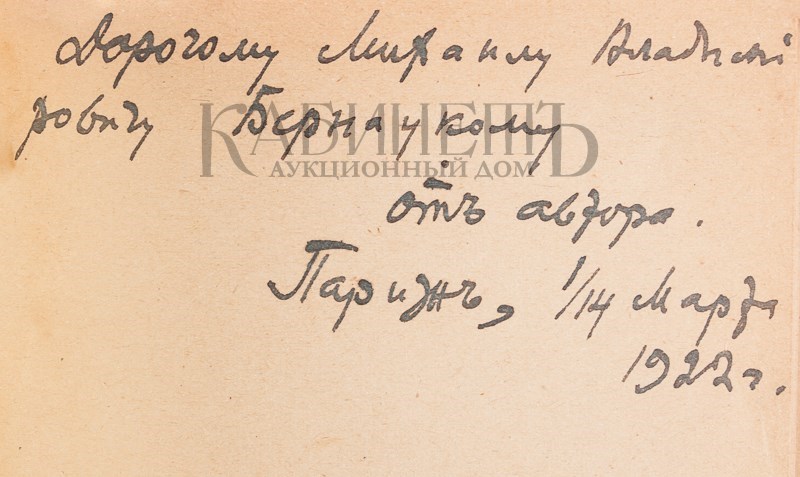 Дорогому Михаилу Владими
ровичу Бернацкому
КАБИНЕТЪ
АУКЦИОННЫЙ ДОМ
отъ автора.
Парижъ, 1/14 Марта
1922 г.